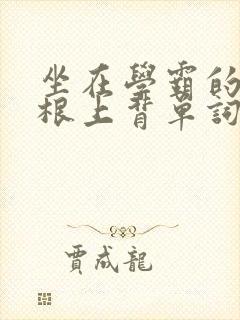 坐在學霸的
根上背單詞
賈成龍